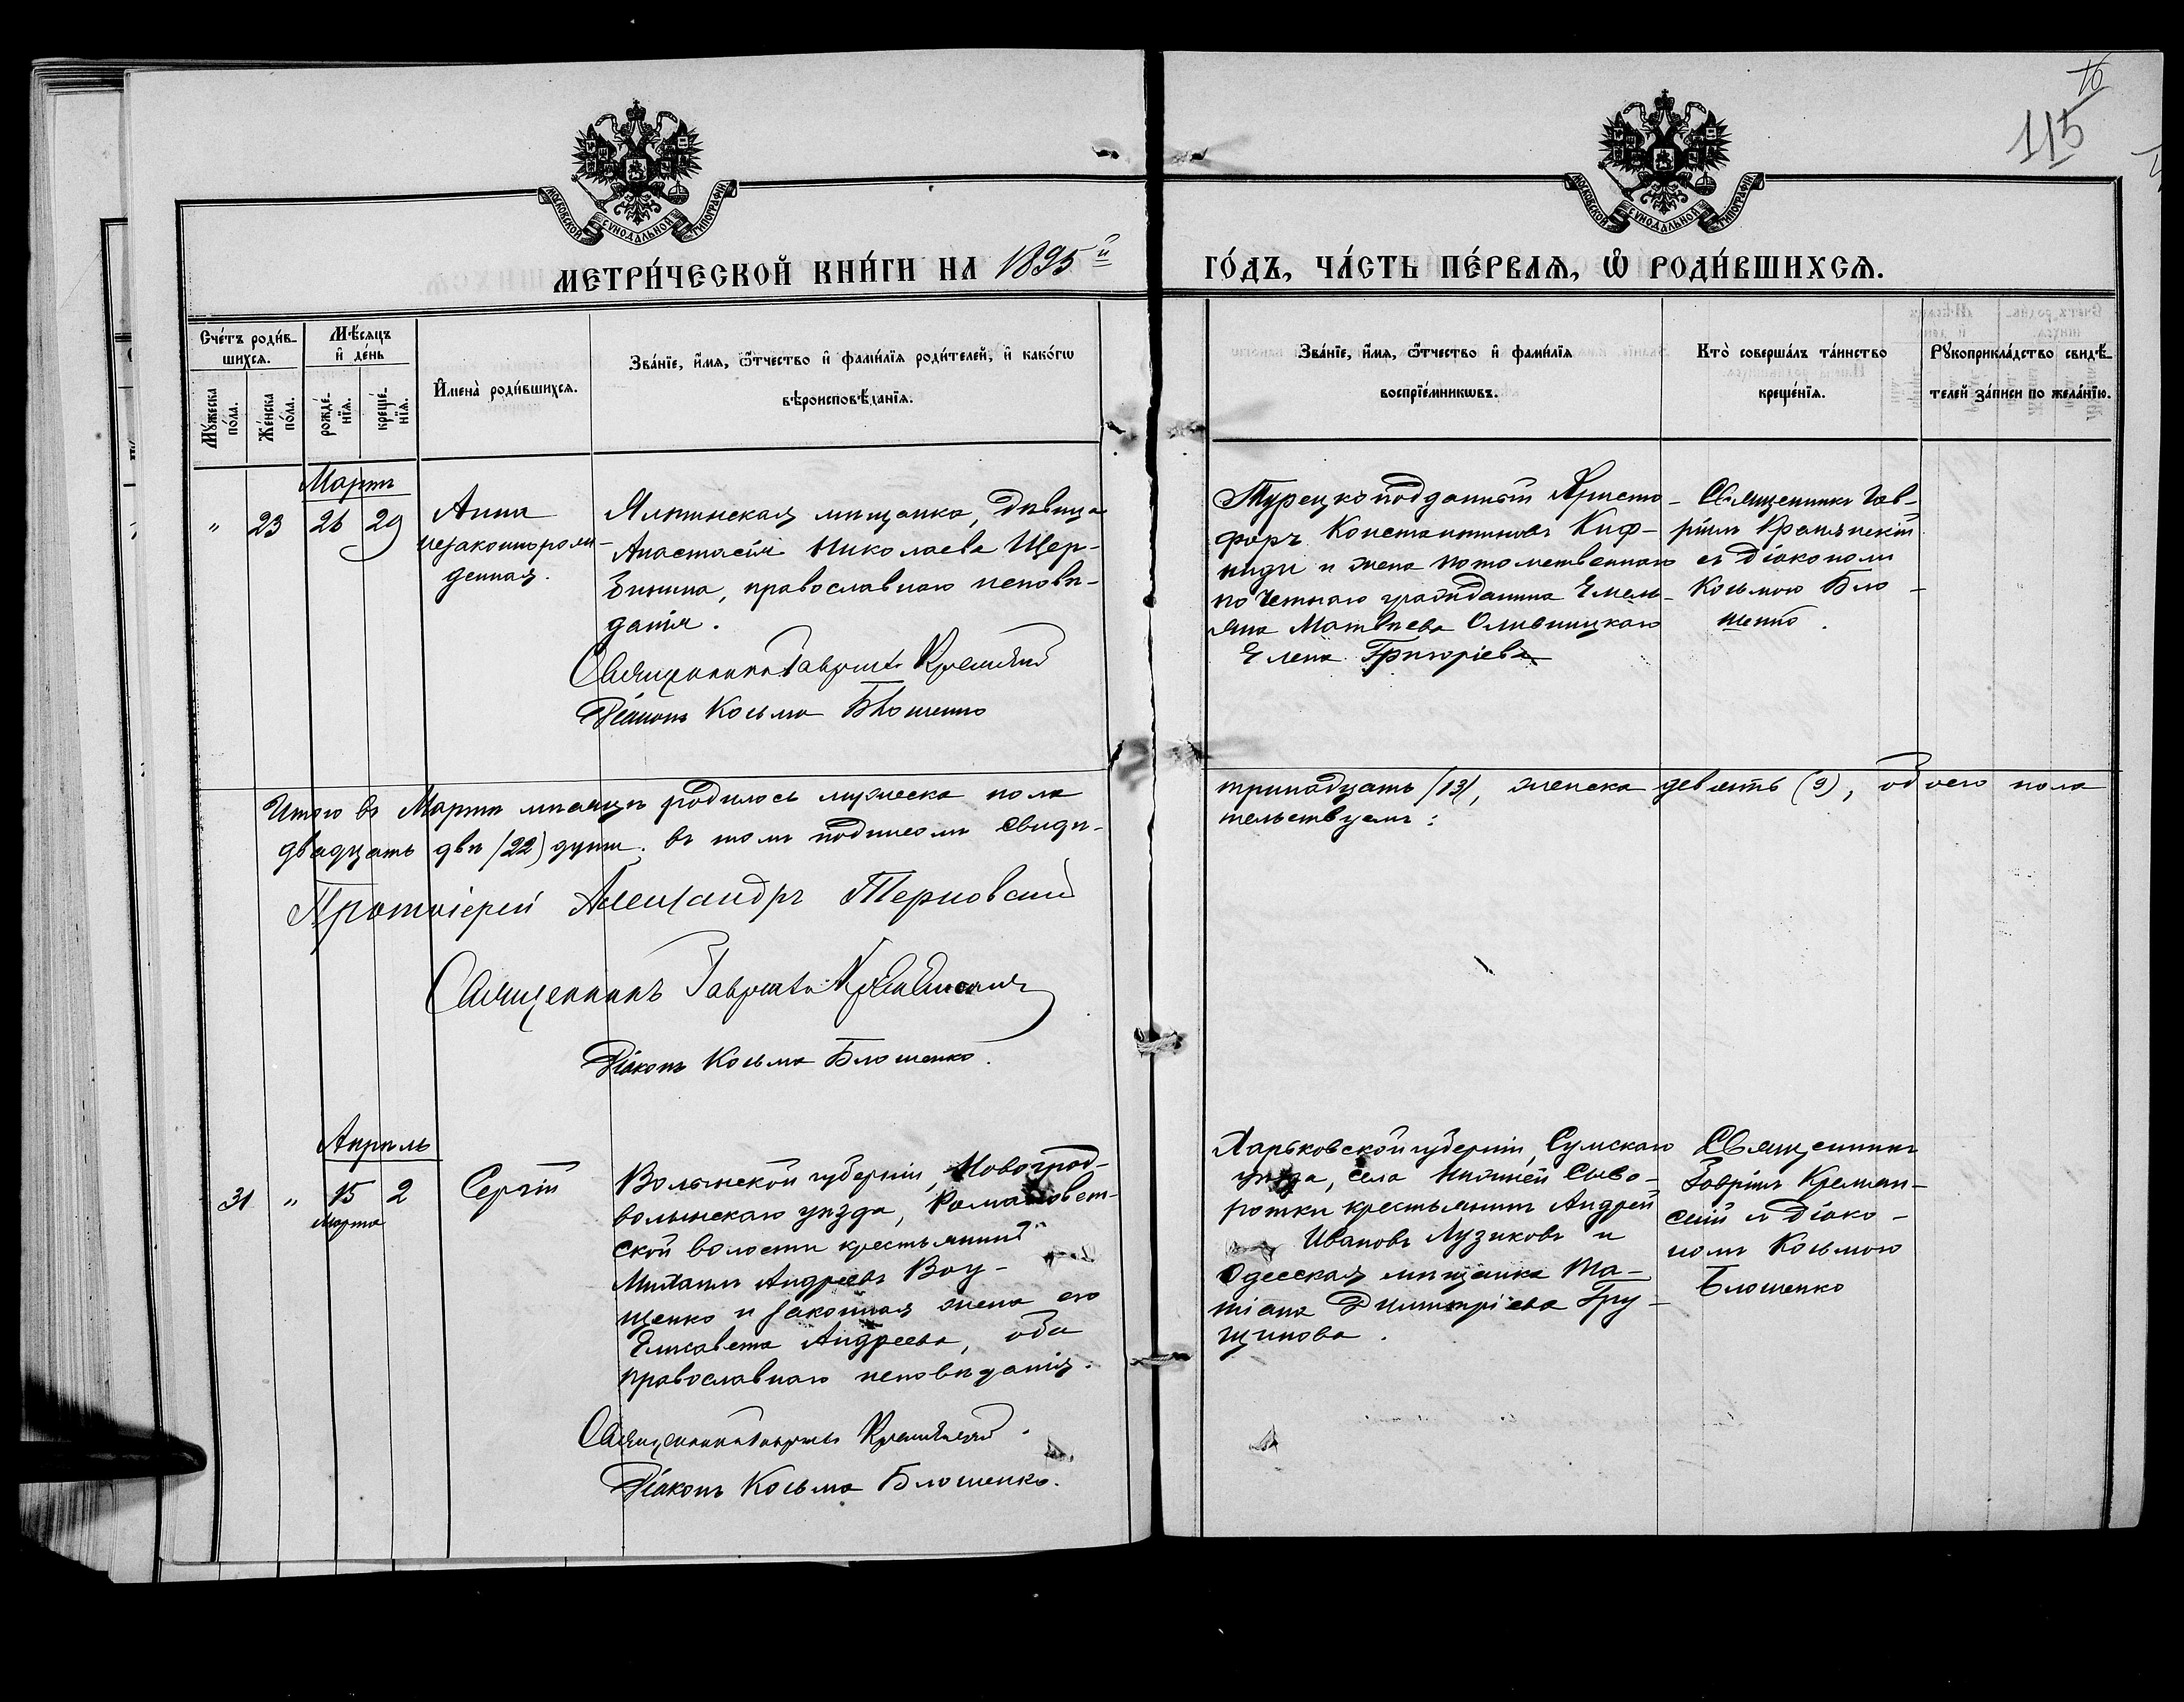 16
115
МОСКОВСКОЙ СѴНОДАЛЬНОЙ ТИПОГРАФІИ
МОСКОВСКОЙ СѴНОДАЛЬНОЙ ТИПОГРАФІИ
МЕТРИ́ЧЕСКОЙ КНИ́ГИ НА 1895й
ГО́ДЪ, ЧА́СТЬ ПЕ́РВАЯ, Ѡ҆ РОДИ́ВШИХСЯ.
Сче́тъ роди́в-
шихся.
Му́жеска по́ла.
Же́нска по́ла.
Мѣ́сяцъ и҆ де́нь
рожде́-нїя.
креще́-нїя.
И҆мена̀ роди́вшихся.
Зва́нїе, и҆́мя, ѻ҆́тчество и҆ фами́лїя роди́телей, и҆ како́гѡ
вѣроисповѣ́данїя.
Зва́нїе, и҆́мя, ѻ҆́тчество и҆ фами́лїя
воспрїе́мникѡвъ.
Кто̀ соверша́лъ та́инство
креще́нїя.
Рꙋкоприкла́дство свидѣ́-
телей за́писи по жела́нїю.
Мартъ
" 23 26 29
Анна
незаконнорож-
денная.
Ялтинская мѣщанка, дѣвица
Анастасія Николаева Щер-
бинина, православнаго исповѣ-
данія.
Священникъ Гавріилъ
Діаконъ Козьма Блошенко
Турецкоподданный Христо-
форъ Константиновъ Киф-
ниди и жена потомственнаго
почетнаго гражданина Емель-
яна Матвѣева Оливницкаго
Елена Григорієва
Священникъ Гав-
ріилъ
съ діакономъ
Козьмою Бло-
шенко.
Итого въ Мартѣ мѣсяцѣ родилось мужеска пола
тринадцать (13), женска девять (9), обоего пола
двадцать двѣ (22) души. въ томъ подписомъ свидѣ-
тельствуемъ:
Протоіерей Александръ Терновскій
Священникъ Гавріилъ
Діаконъ Козьма Блошенко.
Апрѣль
31 " 15 2
Марта
Сергій
Волынской губерніи, Новоград-
волынскаго уѣзда, Романовет-
ской волости крестьянинъ
Михаилъ Андреевъ Вау-
щенко и законная жена его
Елисавета Андреева, оба
православнаго исповѣданія.
Священникъ Гавріилъ
Діаконъ Козьма Блошенко.
Харьковской губерніи, Сумскаго
уѣзда, села Нижней Сыво-
ротки крестьянинъ Андрей
Ивановъ Лузиковъ и
Одесская мѣщанка Та-
тіана Димитріева Гру-
щинова.
Священникъ
Гавріилъ
скій съ діако-
номъ Козьмою
Блошенко